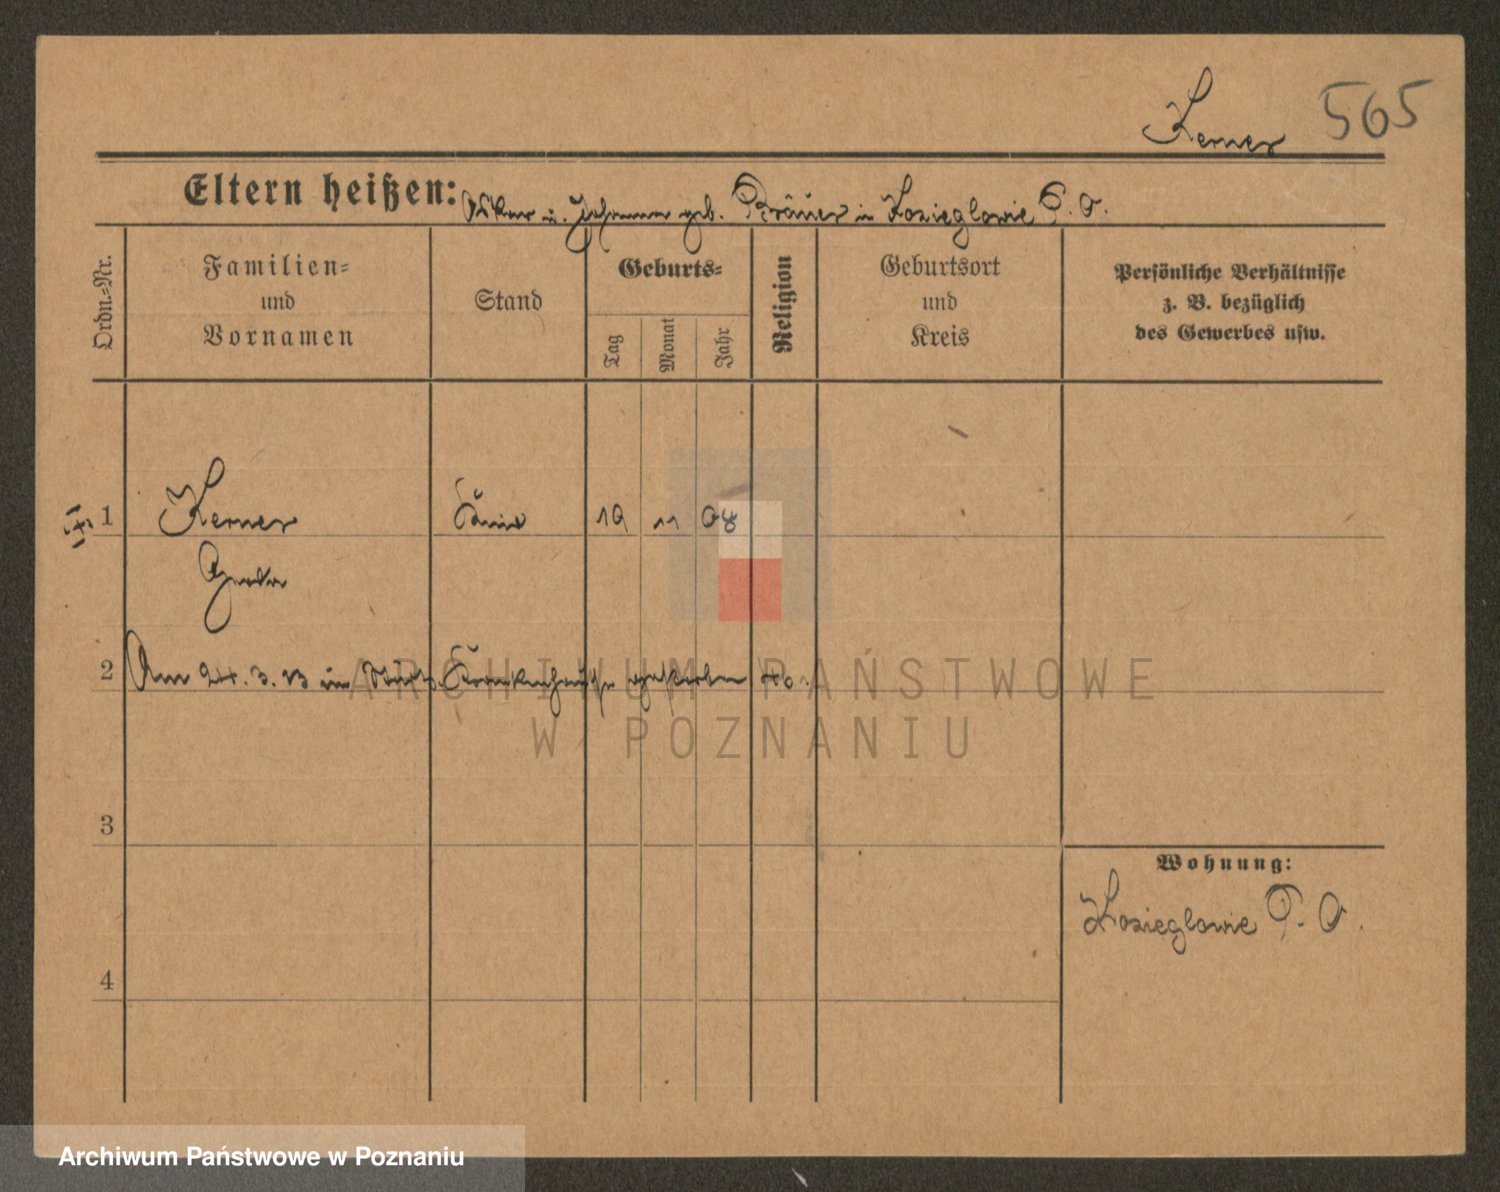 Kerner 565
Eltern heißen: Oskar u. Johanna geb. Bräuer in Kozieglowie P. O.
Ordn.-Nr.
Familien-
und
Vornamen
Stand
Geburts-
Tag
Monat
Jahr
Religion
Geburtsort
und
Kreis
Persönliche Verhältnisse
z. B. bezüglich
des Gewerbes usw.
1 Kerner 19 11 08
2 Am 24. 3. 13 im Krankenhause gestorben
ARCHIWUM PAŃSTWOWE
W POZNANIU
3
Wohnung:
Kozieglowie P. O.
4
Archiwum Państwowe w Poznaniu